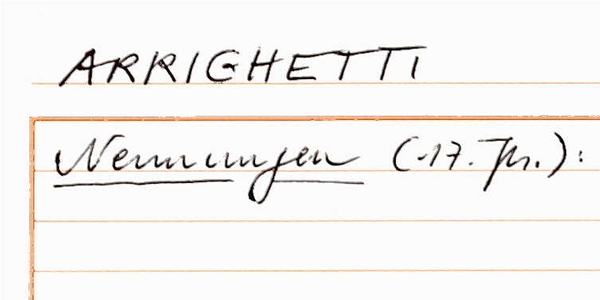 ARRIGHETTI
Nennungen (-17. Jh.):